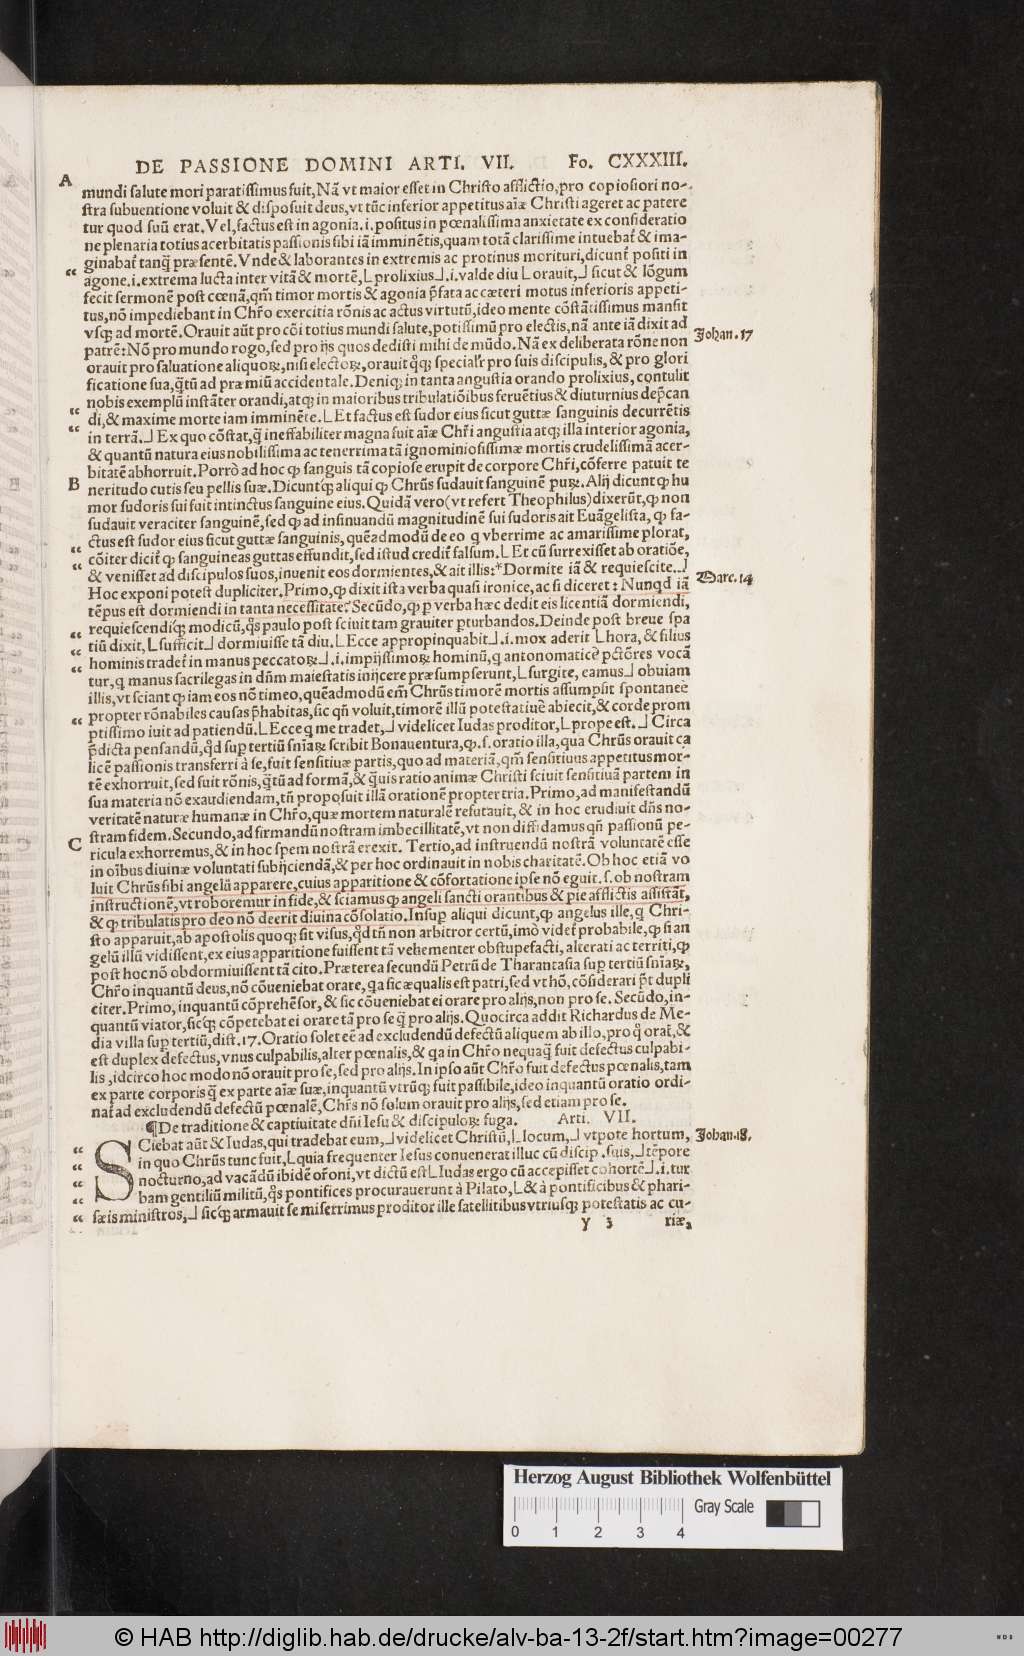 DE PASSIONE DOMINI ARTI. VII. Fo. CXXXIII.
A
mundi salute mori paratissimus fuit, Nã vt maior esset in Christo afflictio, pro copiosiori no-
stra subuentione voluit & disposuit deus, vt tũc inferior appetitus aĩæ Christi ageret ac patere
tur quod suũ erat. Vel, factus est in agonia .i. positus in pœnalissima anxietate ex consideratio
ne plenaria totius acerbitatis passionis sibi iã imminẽtis, quam totã clarissime intuebat̃ & ima-
ginabat̃ tanq̃ præsentẽ. Vnde & laborantes in extremis ac protinus morituri, dicunt̃ positi in
agone .i. extrema lucta inter vitã & mortẽ, L prolixius ⅃ .i. valde diu L orauit, ⅃ sicut & lõgum
fecit sermonẽ post cœnã, qm̃ timor mortis & agonia p̃fata ac cæteri motus inferioris appeti-
tus, nõ impediebant in Chr̃o exercitia rõnis ac actus virtutũ, ideo mente cõstãtissimus mansit
vsq; ad mortẽ. Orauit aũt pro cõi totius mundi salute, potissimũ pro electis, nã ante iã dixit ad
Johan. 17
patrẽ: Nõ pro mundo rogo, sed pro ijs quos dedisti mihi de mũdo. Nã ex deliberata rõne non
orauit pro saluatione aliquoꝝ, nisi electoꝝ, orauit q̃q; speciałr pro suis discipulis, & pro glori
ficatione sua, q̃tũ ad præmiũ accidentale. Deniq; in tanta angustia orando prolixius, contulit
nobis exemplũ instãter orandi, atq; in maioribus tribulatiõibus feruẽtius & diuturnius dep̃can
di, & maxime morte iam imminẽte. L Et factus est sudor eius sicut guttæ sanguinis decurrẽtis
in terrã. ⅃ Ex quo cõstat, q̃ ineffabiliter magna fuit aĩæ Chr̃i angustia atq; illa interior agonia,
& quantũ natura eius nobilissima ac tenerrima tã ignominiosissimæ mortis crudelissimã acer-
bitatẽ abhorruit. Porrò ad hoc ꝙ sanguis tã copiose erupit de corpore Chr̃i, cõferre patuit te
B
neritudo cutis seu pellis suæ. Dicuntq; aliqui ꝙ Chrũs sudauit sanguinẽ puꝝ. Alij dicunt ꝙ hu
mor sudoris sui fuit intinctus sanguine eius. Quidã vero (vt refert Theophilus) dixerũt, ꝙ non
sudauit veraciter sanguinẽ, sed ꝙ ad insinuandũ magnitudinẽ sui sudoris ait Euãgelista, ꝙ fa-
ctus est sudor eius sicut guttæ sanguinis, quẽadmodũ de eo q vberrime ac amarissime plorat,
cõiter dicit̃ ꝙ sanguineas guttas effundit, sed istud credit̃ falsum. L Et cũ surrexisset ab oratiõe,
& venisset ad discipulos suos, inuenit eos dormientes, & ait illis: * Dormite iã & requiescite. ⅃
Marc. 14
Hoc exponi potest dupliciter. Primo, ꝙ dixit ista verba quasi ironice, ac si diceret: Nunqd iã
tẽpus est dormiendi in tanta necessitate? Secũdo, ꝙ p verba hæc dedit eis licentiã dormiendi,
requiescendiq; modicũ, q̃s paulo post sciuit tam grauiter pturbandos. Deinde post breue spa
tiũ dixit, L sufficit ⅃ dormiuisse tã diu. L Ecce appropinquabit ⅃ .i. mox aderit L hora, & filius
hominis tradet̃ in manus peccatoꝝ ⅃ .i. impijssimoꝝ hominũ, q antonomatice pctõres vocã
tur, q manus sacrilegas in dñm maiestatis inijcere præsumpserunt, L surgite, eamus ⅃ obuiam
illis, vt sciant ꝙ iam eos nõ timeo, quẽadmodũ em̃ Chrũs timorẽ mortis assumpsit spontanee
propter rõnabiles causas p̃habitas, sic qñ voluit, timorẽ illũ potestatiuè abiecit, & corde prom
ptissimo iuit ad patiendũ. L Ecce q me tradet, ⅃ videlicet Iudas proditor, L prope est. ⅃ Circa
p̃dicta pensandũ, q̃d sup tertiũ snĩaꝝ scribit Bonauentura, ꝙ .s. oratio illa, qua Chrũs orauit ca
licẽ passionis transferri à se, fuit sensitiuæ partis, quo ad materiã, qm̃ sensitiuus appetitus mor-
tẽ exhorruit, sed fuit rõnis, q̃tũ ad formã, & q̃uis ratio animæ Christi sciuit sensitiuã partem in
sua materia nõ exaudiendam, tñ proposuit illã orationẽ propter tria. Primo, ad manifestandũ
veritatẽ naturæ humanæ in Chr̃o, quæ mortem naturalẽ refutauit, & in hoc erudiuit dñs no-
stram fidem. Secundo, ad firmandũ nostram imbecillitatẽ, vt non diffidamus qñ passionũ pe-
C
ricula exhorremus, & in hoc spem nostrã erexit. Tertio, ad instruendũ nostrã voluntatẽ esse
in oĩbus diuinæ voluntati subijciendã, & per hoc ordinauit in nobis charitatẽ. Ob hoc etiã vo
luit Chrũs sibi angelũ apparere, cuius apparitione & cõfortatione ipse nõ eguit .s. ob nostram
instructionẽ, vt roboremur in fide, & sciamus ꝙ angeli sancti orantibus & pie afflictis assistãt,
& ꝙ tribulatis pro deo nõ deerit diuina cõsolatio. Insup aliqui dicunt, ꝙ angelus ille, q Chri-
sto apparuit, ab apostolis quoq; sit visus, q̃d tñ non arbitror certũ, imò videt̃ probabile, ꝙ si an
gelũ illũ vidissent, ex eius apparitione fuissent tã vehementer obstupefacti, alterati ac territi, ꝙ
post hoc nõ obdormiuissent tã cito. Præterea secundũ Petrũ de Tharantasia sup tertiũ snĩaꝝ,
Chr̃o inquantũ deus, nõ cõueniebat orare, qa sic æqualis est patri, sed vt hõ, cõsiderari p̃t dupli
citer. Primo, inquantũ cõprehẽsor, & sic cõueniebat ei orare pro alijs, non pro se. Secũdo, in-
quantũ viator, sicq; cõpetebat ei orare tã pro se q̃ pro alijs. Quocirca addit Richardus de Me-
dia villa sup tertiũ, dist. 17. Oratio solet eẽ ad excludendũ defectũ aliquem ab illo, pro q̃ orat̃, &
est duplex defectus, vnus culpabilis, alter pœnalis, & qa in Chr̃o nequaq̃ fuit defectus culpabi-
lis, idcirco hoc modo nõ orauit pro se, sed pro alijs. In ipso aũt Chr̃o fuit defectus pœnalis, tam
ex parte corporis q̃ ex parte aĩæ suæ, inquantũ vtrũq; fuit passibile, ideo inquantũ oratio ordi-
nat̃ ad excludendũ defectũ pœnalẽ, Chr̃s nõ solum orauit pro alijs, sed etiam pro se.
¶ De traditione & captiuitate dñi Iesu & discipuloꝝ fuga. Arti. VII.
SCiebat aũt & Iudas, qui tradebat eum, ⅃ videlicet Christũ, L locum, ⅃ vtpote hortum,
Johan. 18.
in quo Chrũs tunc fuit, L quia frequenter Iesus conuenerat illuc cũ discip. suis, ⅃ tẽpore
nocturno, ad vacãdũ ibidẽ or̃oni, vt dictũ est L Iudas ergo cũ accepisset cohortẽ ⅃ .i. tur
bam gentiliũ militũ, q̃s pontifices procurauerunt à Pilato, L & à pontificibus & phari-
sæis ministros, ⅃ sicq; armauit se miserrimus proditor ille satellitibus vtriusq; potestatis ac cu-
y 3 riæ,
Herzog August Bibliothek Wolfenbüttel
Gray Scale
0 1 2 3 4
© HAB http://diglib.hab.de/drucke/alv-ba-13-2f/start.htm?image=00277